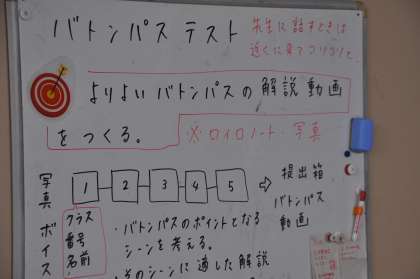 バトンパステスト
先生に話すときは
近くに来て
よりよいバトンパスの解説動画
をつくる。
※ロイロノート・写真
写真
1 2 3 4 5 ⇨ 提出箱
バトンパス
動画
ボイス
クラス
番号
名前
・バトンパスのポイントとなる
シーンを考える。
・そのシーンに適した解説